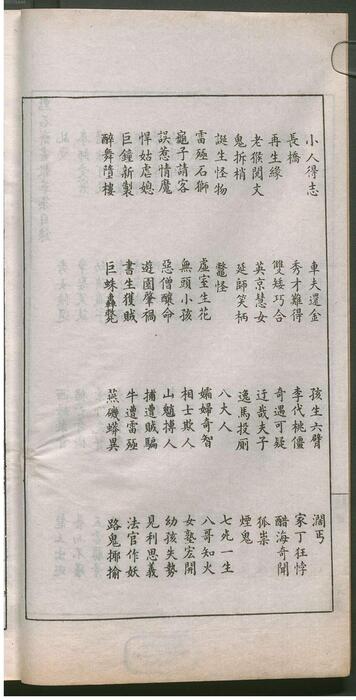 小人得志 車夫還金 孩生六臂 濶丐
長橋 秀才難得 李代桃僵 家丁狂悖
再生緣 雙矮巧合 奇遇可疑 醋海奇聞
老猴閱文 英京慧女 迂哉夫子 狐祟
鬼拆梢 延師笑柄 逸馬投厠 煙鬼
誕生怪物 鼈怪 八大人 七死一生
雷殛石獅 虛室生花 孀婦奇智 八哥知火
龜子請客 無頭小孩 相士欺人 女塾宏開
誤惹情魔 惡僧釀命 山魈摶人 幼孩失勢
悍姑虐媳 遊園肇禍 捕遭賊騙 見利思義
巨鐘新製 書生獲賊 牛遭雷殛 法官作妖
醉舞墮樓 巨蛛轟斃 燕磯蟒異 路鬼揶揄